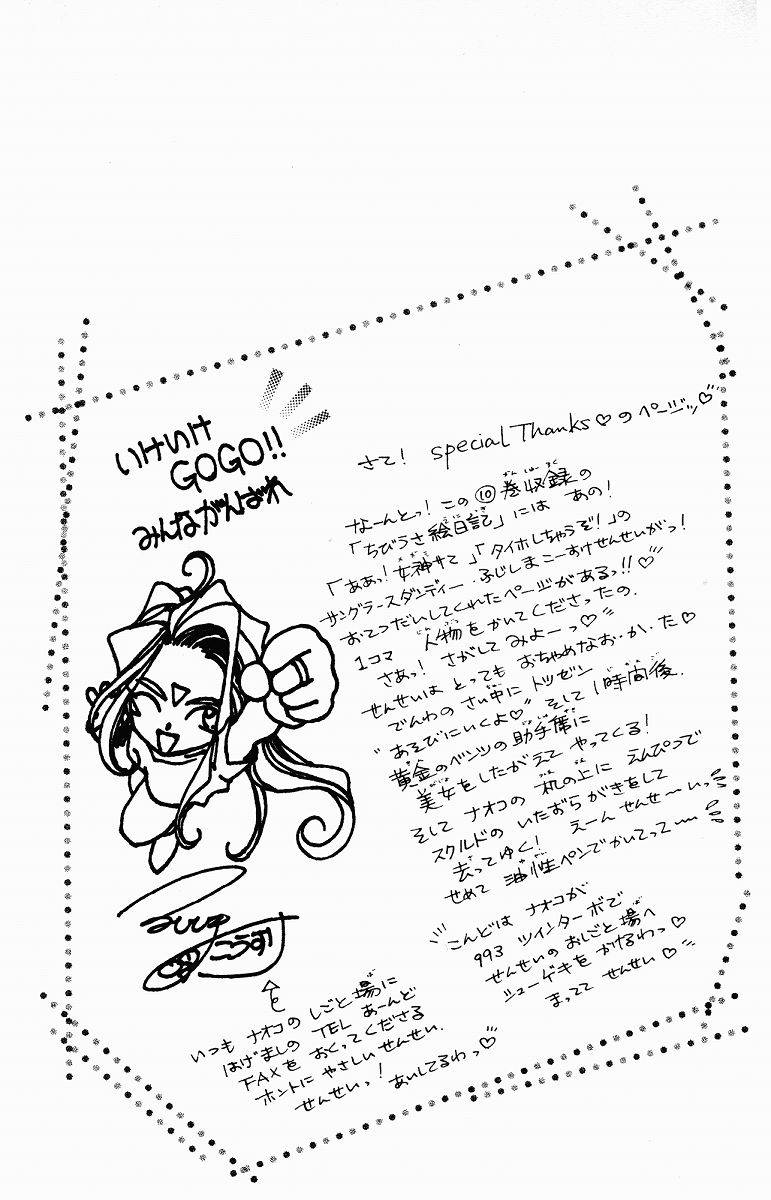 いけいけ
GOGO!!
みんながんばれ
さて! special Thanks♡のページッ♡
なーんとっ!この⑩巻収録の
「ちびうさ絵日記」には あの!
「ああっ!女神サマ」「タイホしちゃうぞ!」の
サングラースダンディー・ふじしまこーすけせんせいがっ!
おてつだいしてくれたページがあるっ!!♡
1コマ 人物をかいてくださったの.
さあっ!さがしてみよーっ♡
せんせいは とっても おちゃめなお・か・た♡
でんわの さい中に トツゼン
"あそびにいくよ♡" そして 1時間後.
黄金のベンツの助手席に
美女をしたがえて やってくる!
そして ナオコの 机の上に えんぴつで
スクルドの いたずらがきをして
去ってゆく! えーん せんせ〜いっ
せめて 油性ペンでかいてって〜
こんどは ナオコが
993 ツインターボで
せんせいのおしごと場へ
シューゲキを かけるわっ♡
まってて せんせい♡
こうすけ
いつも ナオコの しごと場に
はげましの TEL あーんど
FAXを おくってくださる
ホントに やさしい せんせい.
せんせいっ! あいしてるわっ♡